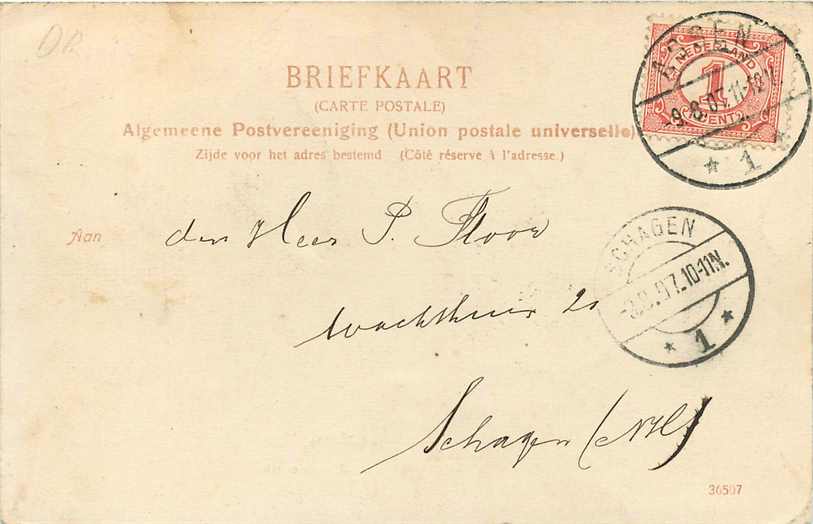 BRIEFKAART
(CARTE POSTALE)
Algemeene Postvereeniging (Union postale universelle)
Zijde voor het adres bestemd (Côté réservé à l'adresse.)
NEDERLAND
1
CENT
ASSEN
9.8.07.11-12V.
1
SCHAGEN
9.8.07.10-11N.
1
Aan den Heer P. Floor
Wachthuis 21
Schagen (N.H.)
36507